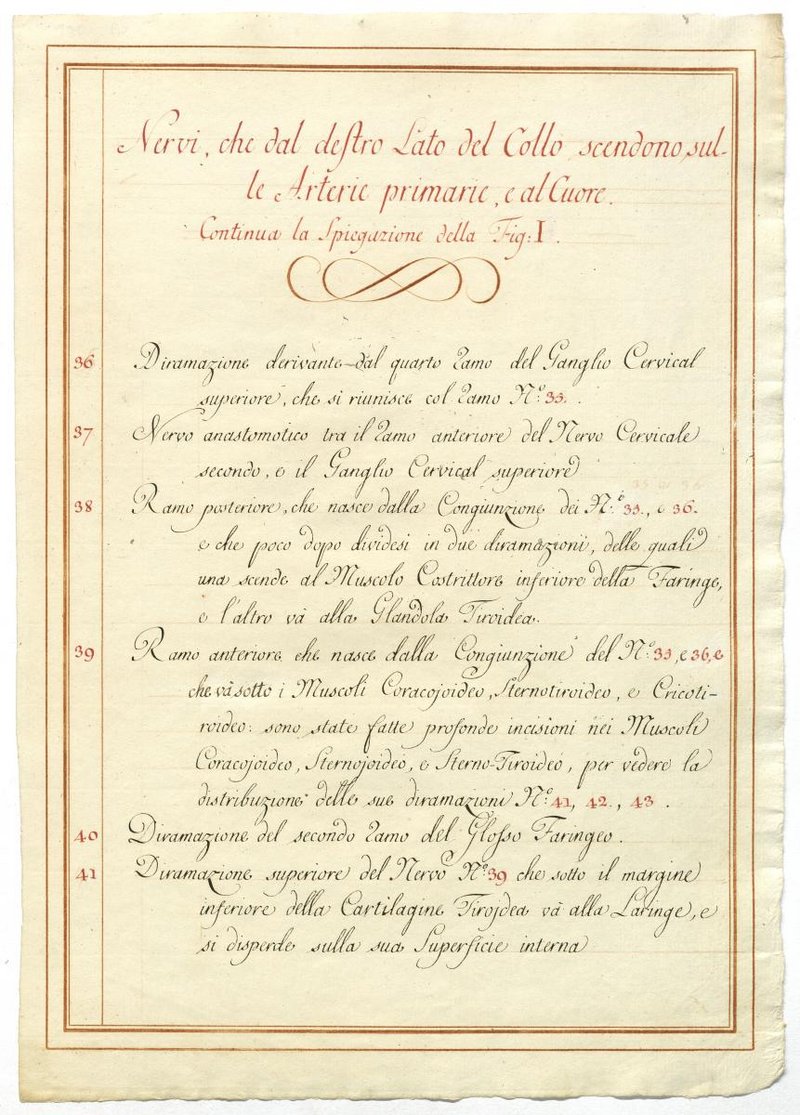 Nervi, che dal destro Lato del Collo scendono sul-
le Arterie primarie, e al Cuore.
Continua la Spiegazione della Fig: I.
36 Diramazione derivante dal quarto Ramo del Ganglio Cervical
superiore, che si riunisce col Ramo N.º 33.
37 Nervo anastomotico tra il Ramo anteriore del Nervo Cervicale
secondo, e il Ganglio Cervical superiore
38 Ramo posteriore, che nasce dalla Congiunzione dei N.º 33., e 36.
e che poco dopo dividesi in due diramazioni, delle quali
una scende al Muscolo Costrittore inferiore della Faringe,
e l'altro và alla Glandola Tiroidea.
39 Ramo anteriore che nasce dalla Congiunzione del N.º 33, e 36, e
che và sotto i Muscoli Coracojoideo, Sternotiroideo, e Cricoti-
roideo: sono state fatte profonde incisioni nei Muscoli
Coracojoideo, Sternojoideo, e Sterno-Tiroideo, per vedere la
distribuzione delle sue diramazioni N.º 41, 42., 43.
40 Diramazione del secondo Ramo del Glosso Faringeo.
41 Diramazione superiore del Nervo N.º 39 che sotto il margine
inferiore della Cartilagine Tirojdea và alla Laringe, e
si disperde sulla sua Superficie interna